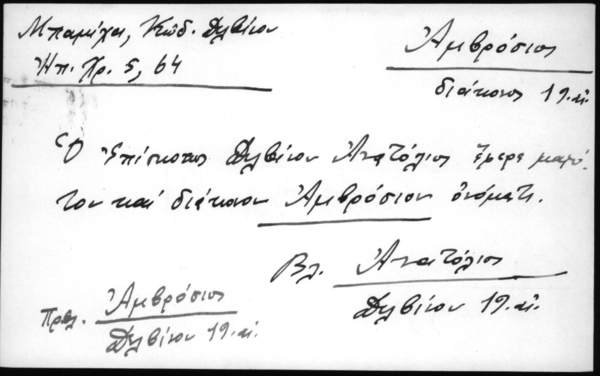 Μπαμίχα, Κῶδ. Δελβίνου
Ἠπ. Χρ. 5, 64
Ἀμβρόσιος
διάκονος 19. αἰ.
Ὁ Ἐπίσκοπος Δελβίνου Ἀνατόλιος
τον καί διάκονον Ἀμβρόσιον ὀνόματι.
Βλ. Ἀνατόλιος
Δελβίνου 19. αἰ.
Πρβλ. Ἀμβρόσιος
Δελβίνου 19. αἰ.